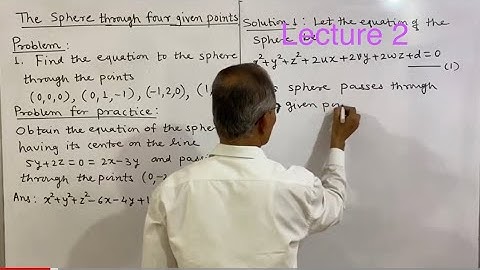 The Sphere through four given points
Problem:
1. Find the equation to the sphere
through the points
(0,0,0), (0,1,-1), (-1,2,0), (1,
Problem for practice:
Obtain the equation of the sphe
having its centre on the line
5y+2z=0=2x-3y and pas
through the points (0,-
Ans: x²+y²+z²-6x-4y+1
Solution 1: Let the equation of the
sphere be
Lecture 2
x²+y²+z²+2ux+2vy+2wz+d=0
(1)
sphere passes through
given po